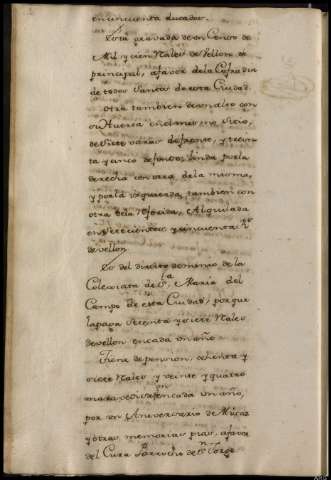 en cincuenta ducados.
Esta gravada de un Censo de
Mil y cien Reales de Vellon de
principal, a favor de la Cofradia
de todos Santos de esta Ciudad.
Otra tambien de un alto con
su Huerta en el mismo Sitio,
de siete varas de frente, y treinta
y cinco de fondo, linda por la
derecha con otra de la misma,
y por la izquierda, tambien con
otra de la Referida, Alquilada
en Trescientos y cincuenta Rs
de vellon.
Es del directo dominio de la
Colegiata de Sta Maria del
Campo de esta Ciudad, porque
la paga setenta y siete Reales
de vellon en cada un año.
Tiene de pension, ochenta y
siete Reales y veinte y quatro
maravedis en cada un año,
por un Aniversario de Misas
y otras memorias pias, a favor
del Cura Parrocho de Sn Jorge